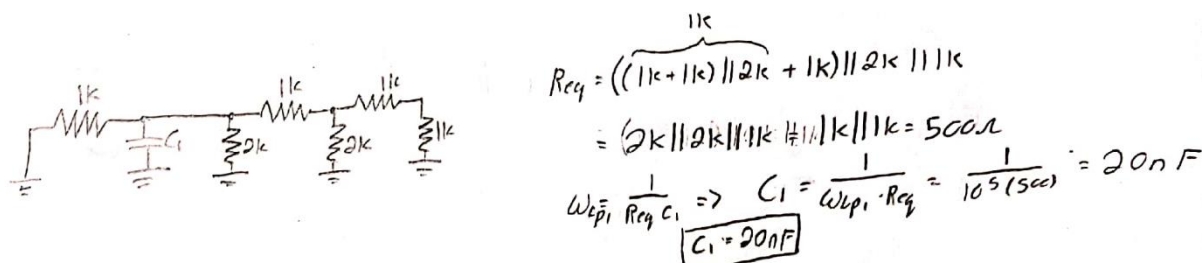 1k
Req = ((1k+1k)||2k + 1k)||2k||1k
1k 1k 1k
C1 2k 2k 1k
= (2k||2k||1k = 1k||1k = 500Ω
ωLP1 = 1/(Req C1) => C1 = 1/(ωLP1 · Req) = 1/(10^5 (500)) = 20nF
C1 = 20nF